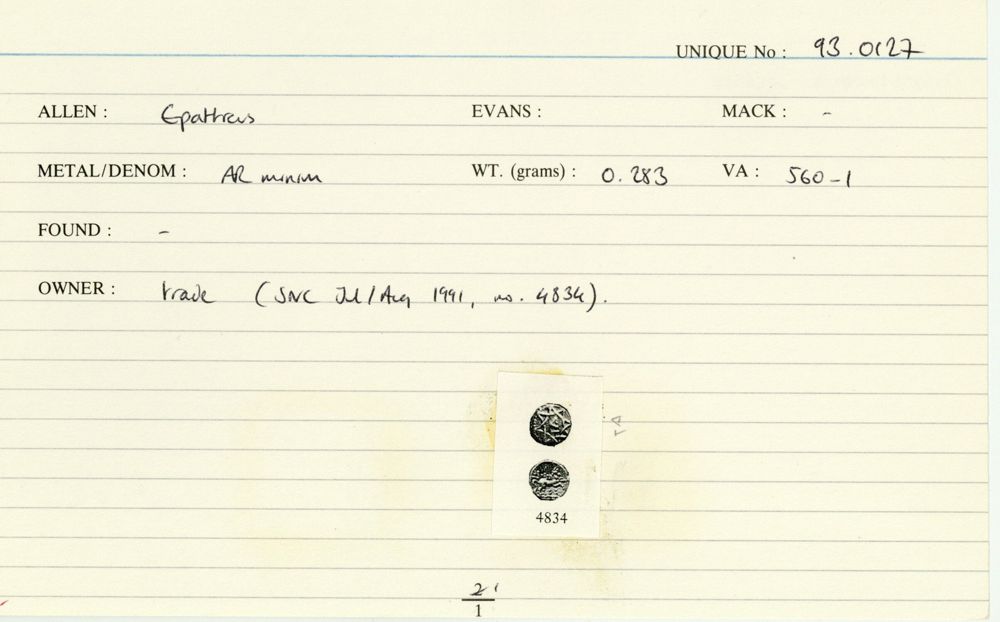 UNIQUE No : 93.0127
ALLEN : Epatticus EVANS : MACK : -
METAL/DENOM : AR minim WT. (grams) : 0.283 VA : 560-1
FOUND : -
OWNER : trade (SNC Jul/Aug 1991, no. 4834).
4834
2'
1